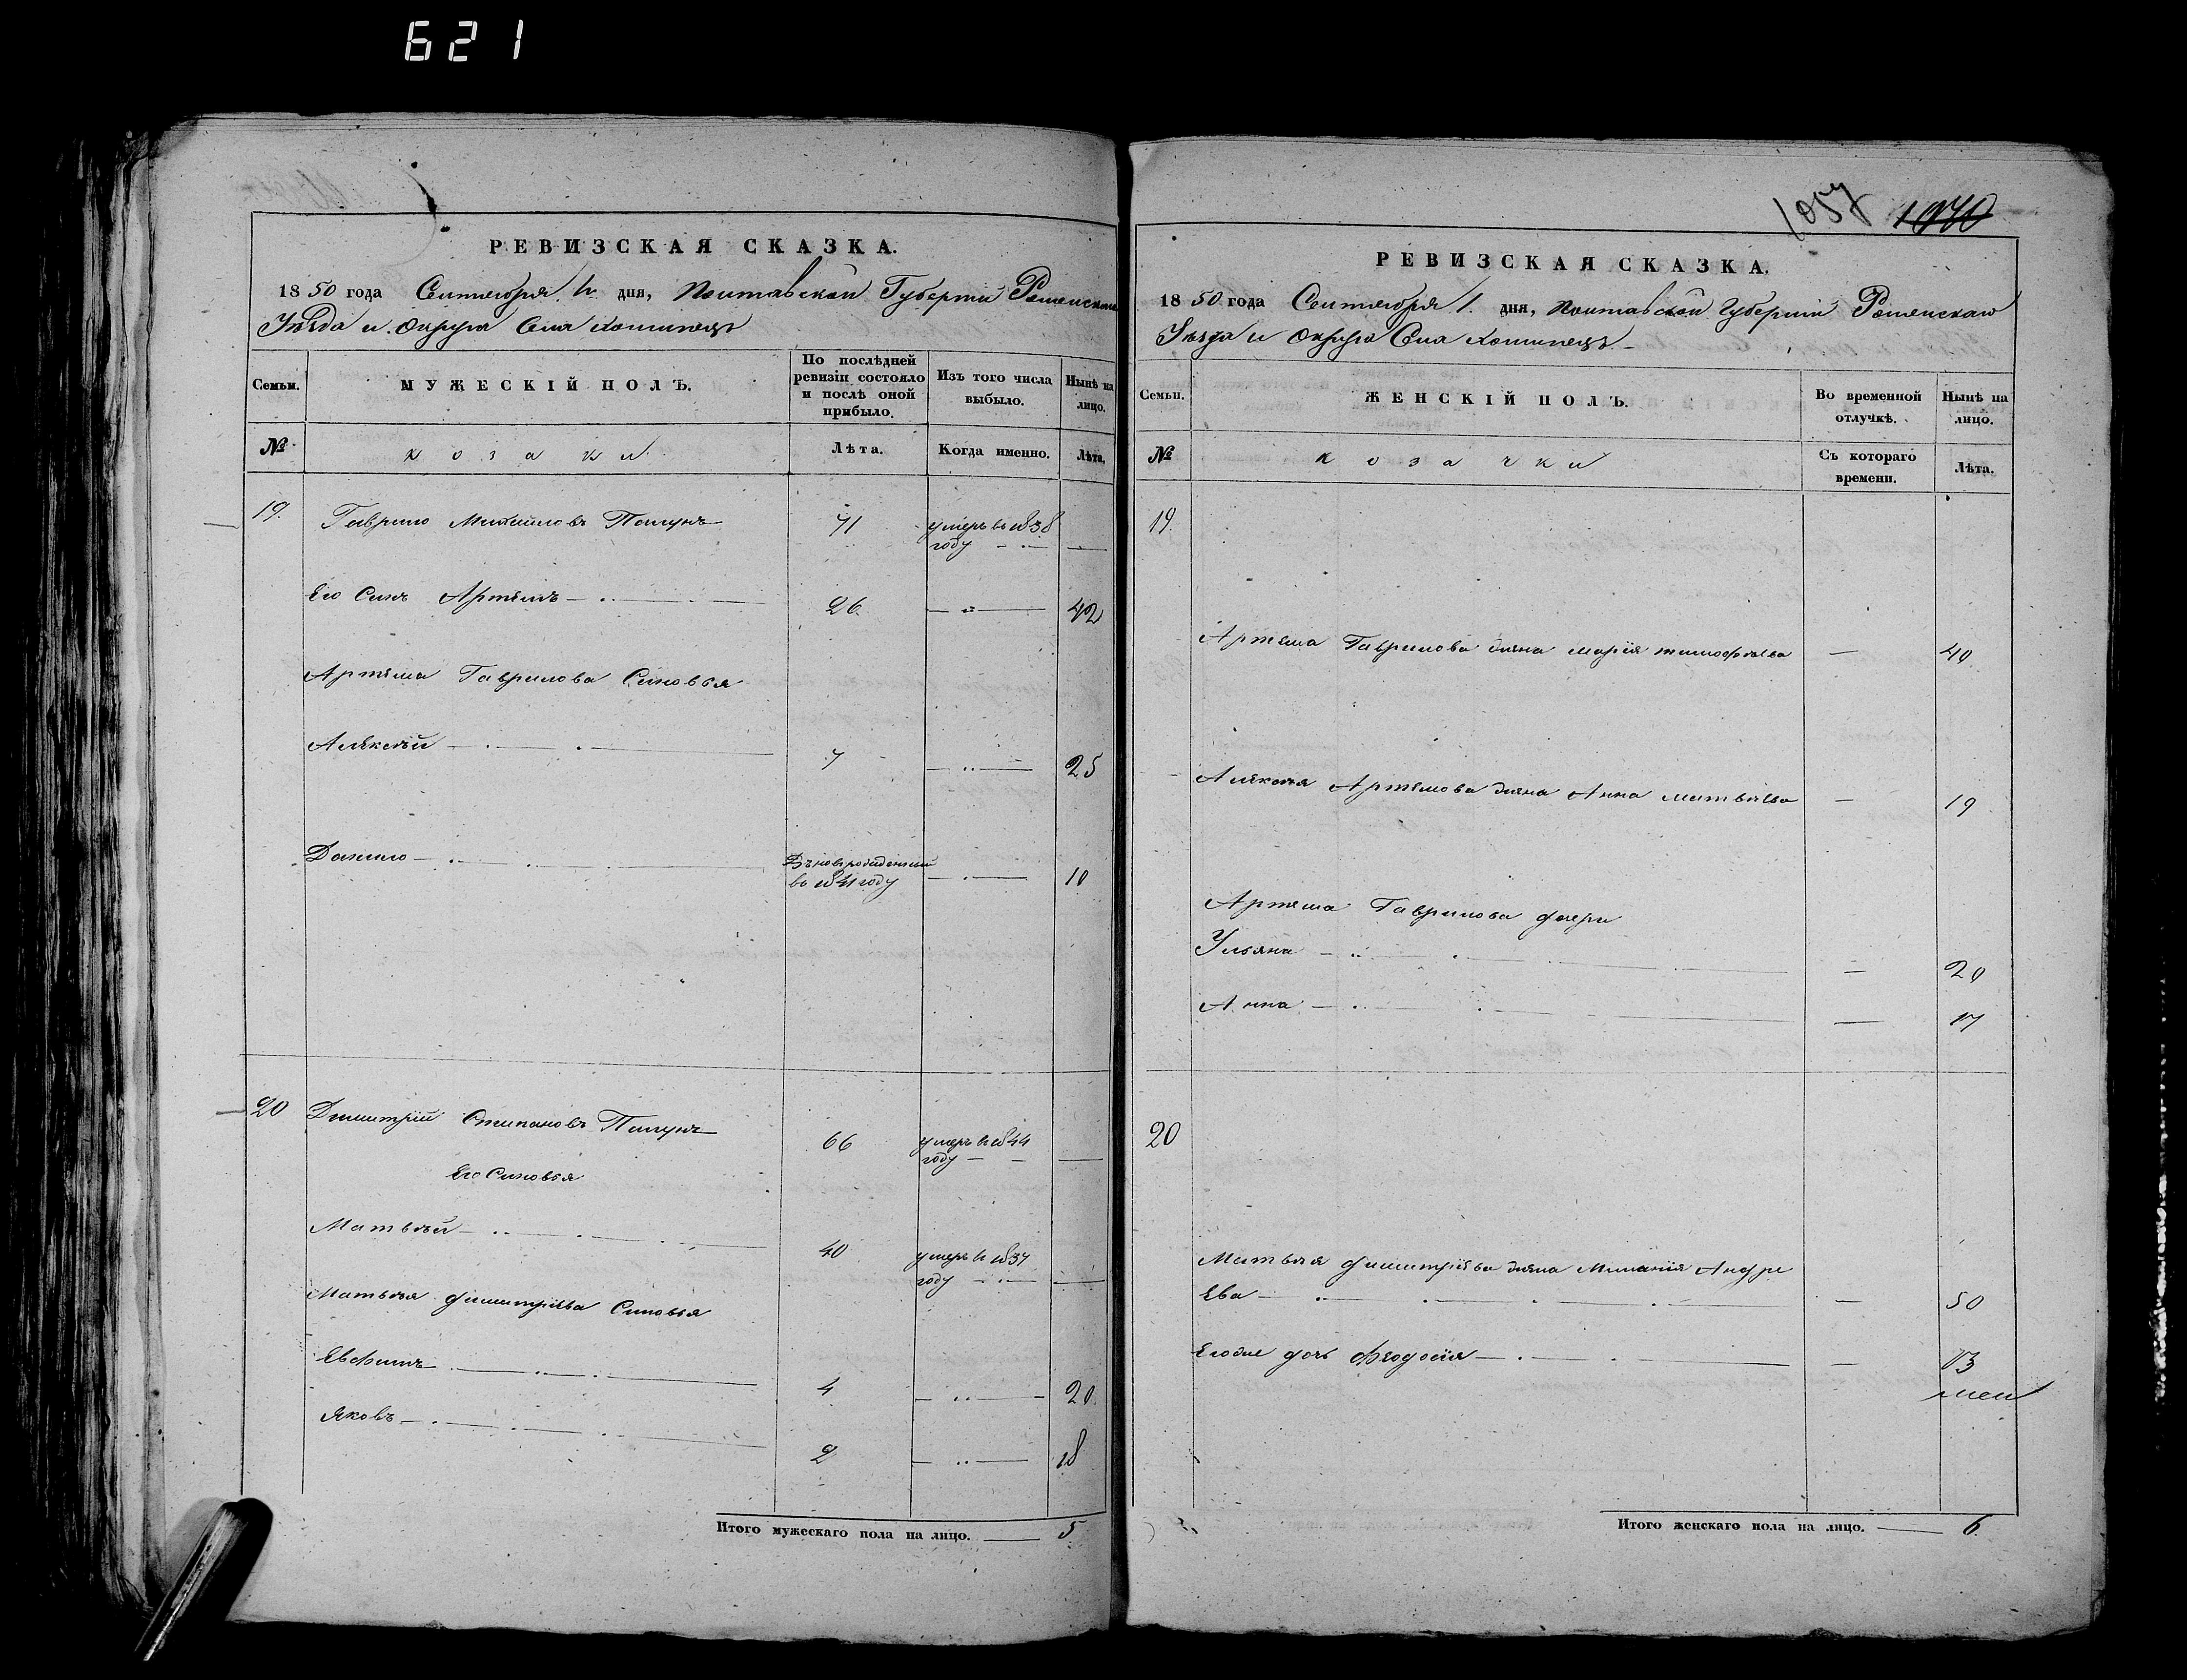 621
РЕВИЗСКАЯ СКАЗКА.
1850 года Сентября 1 дня, Полтавской Губернии Роменскаго
Уѣзда и Округа Села
Семьи. МУЖЕСКІЙ ПОЛЪ. По послѣдней ревизіи состояло и послѣ оной прибыло. Изъ того числа выбыло. Нынѣ на лицо.
№ козаки Лѣта. Когда именно. Лѣта.
19. Гаврило Михайловъ 71 умеръ въ 1838 году —
Его Синъ Артемъ 26 — 42
Артема Гаврилова Синовья
Алексѣй 7 — 25
Данило новорожденный въ 1841 году — 10
20 Димитрій Степановъ 66 умеръ въ 1844 году —
Его Синовья
Матвѣй 40 умеръ въ 1837 году —
Матвѣя Димитріева Синовья
Евфимъ 4 — 20
Яковъ 2 — 18
Итого мужескаго пола на лицо. — 5
1057 1070
РЕВИЗСКАЯ СКАЗКА.
1850 года Сентября 1. дня, Полтавской Губерніи Роменскаго
Уѣзда и Округа Села
Семьи. ЖЕНСКІЙ ПОЛЪ. Во временной отлучкѣ. Нынѣ на лицо.
№ козачки Съ котораго времени. Лѣта.
19.
Артема Гаврилова жена Марія Тимофѣева — 40
Алексѣя Артемова жена Анна Матвѣева — 19
Артема Гаврилова дочери
Ульяна — 20
Анна — 17
20
Матвѣя Димитріева жена Меланія Андре
Ева — 50
Егоже дочь Феодосія — 13
Итого женскаго пола на лицо. — 6.